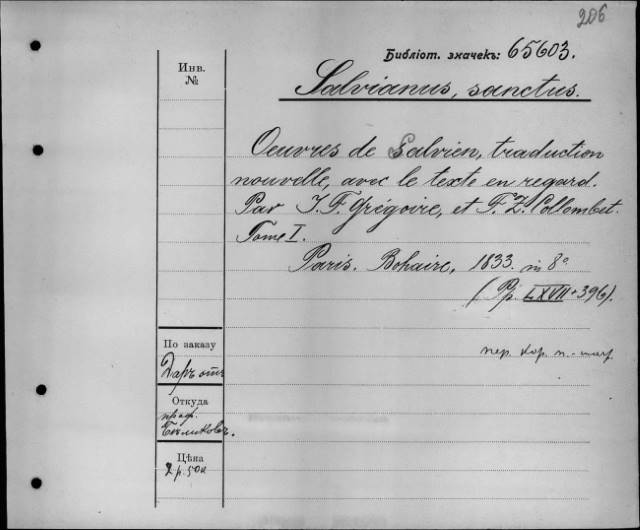 206
Библіот. значекъ: 65603.
Инв.
№
Salvianus, sanctus.
Oeuvres de Salvien, traduction
nouvelle, avec le texte en regard.
Par J. F. Grégoire, et F. Z. Collombet.
Tome I.
Paris. Bohaire, 1833. in 8°
(Pp. LXVIII+396).
По заказу
Даръ отъ
пер. кор. п.
Откуда
проф.
Бѣликова.
Цѣна
2 р. 50 к